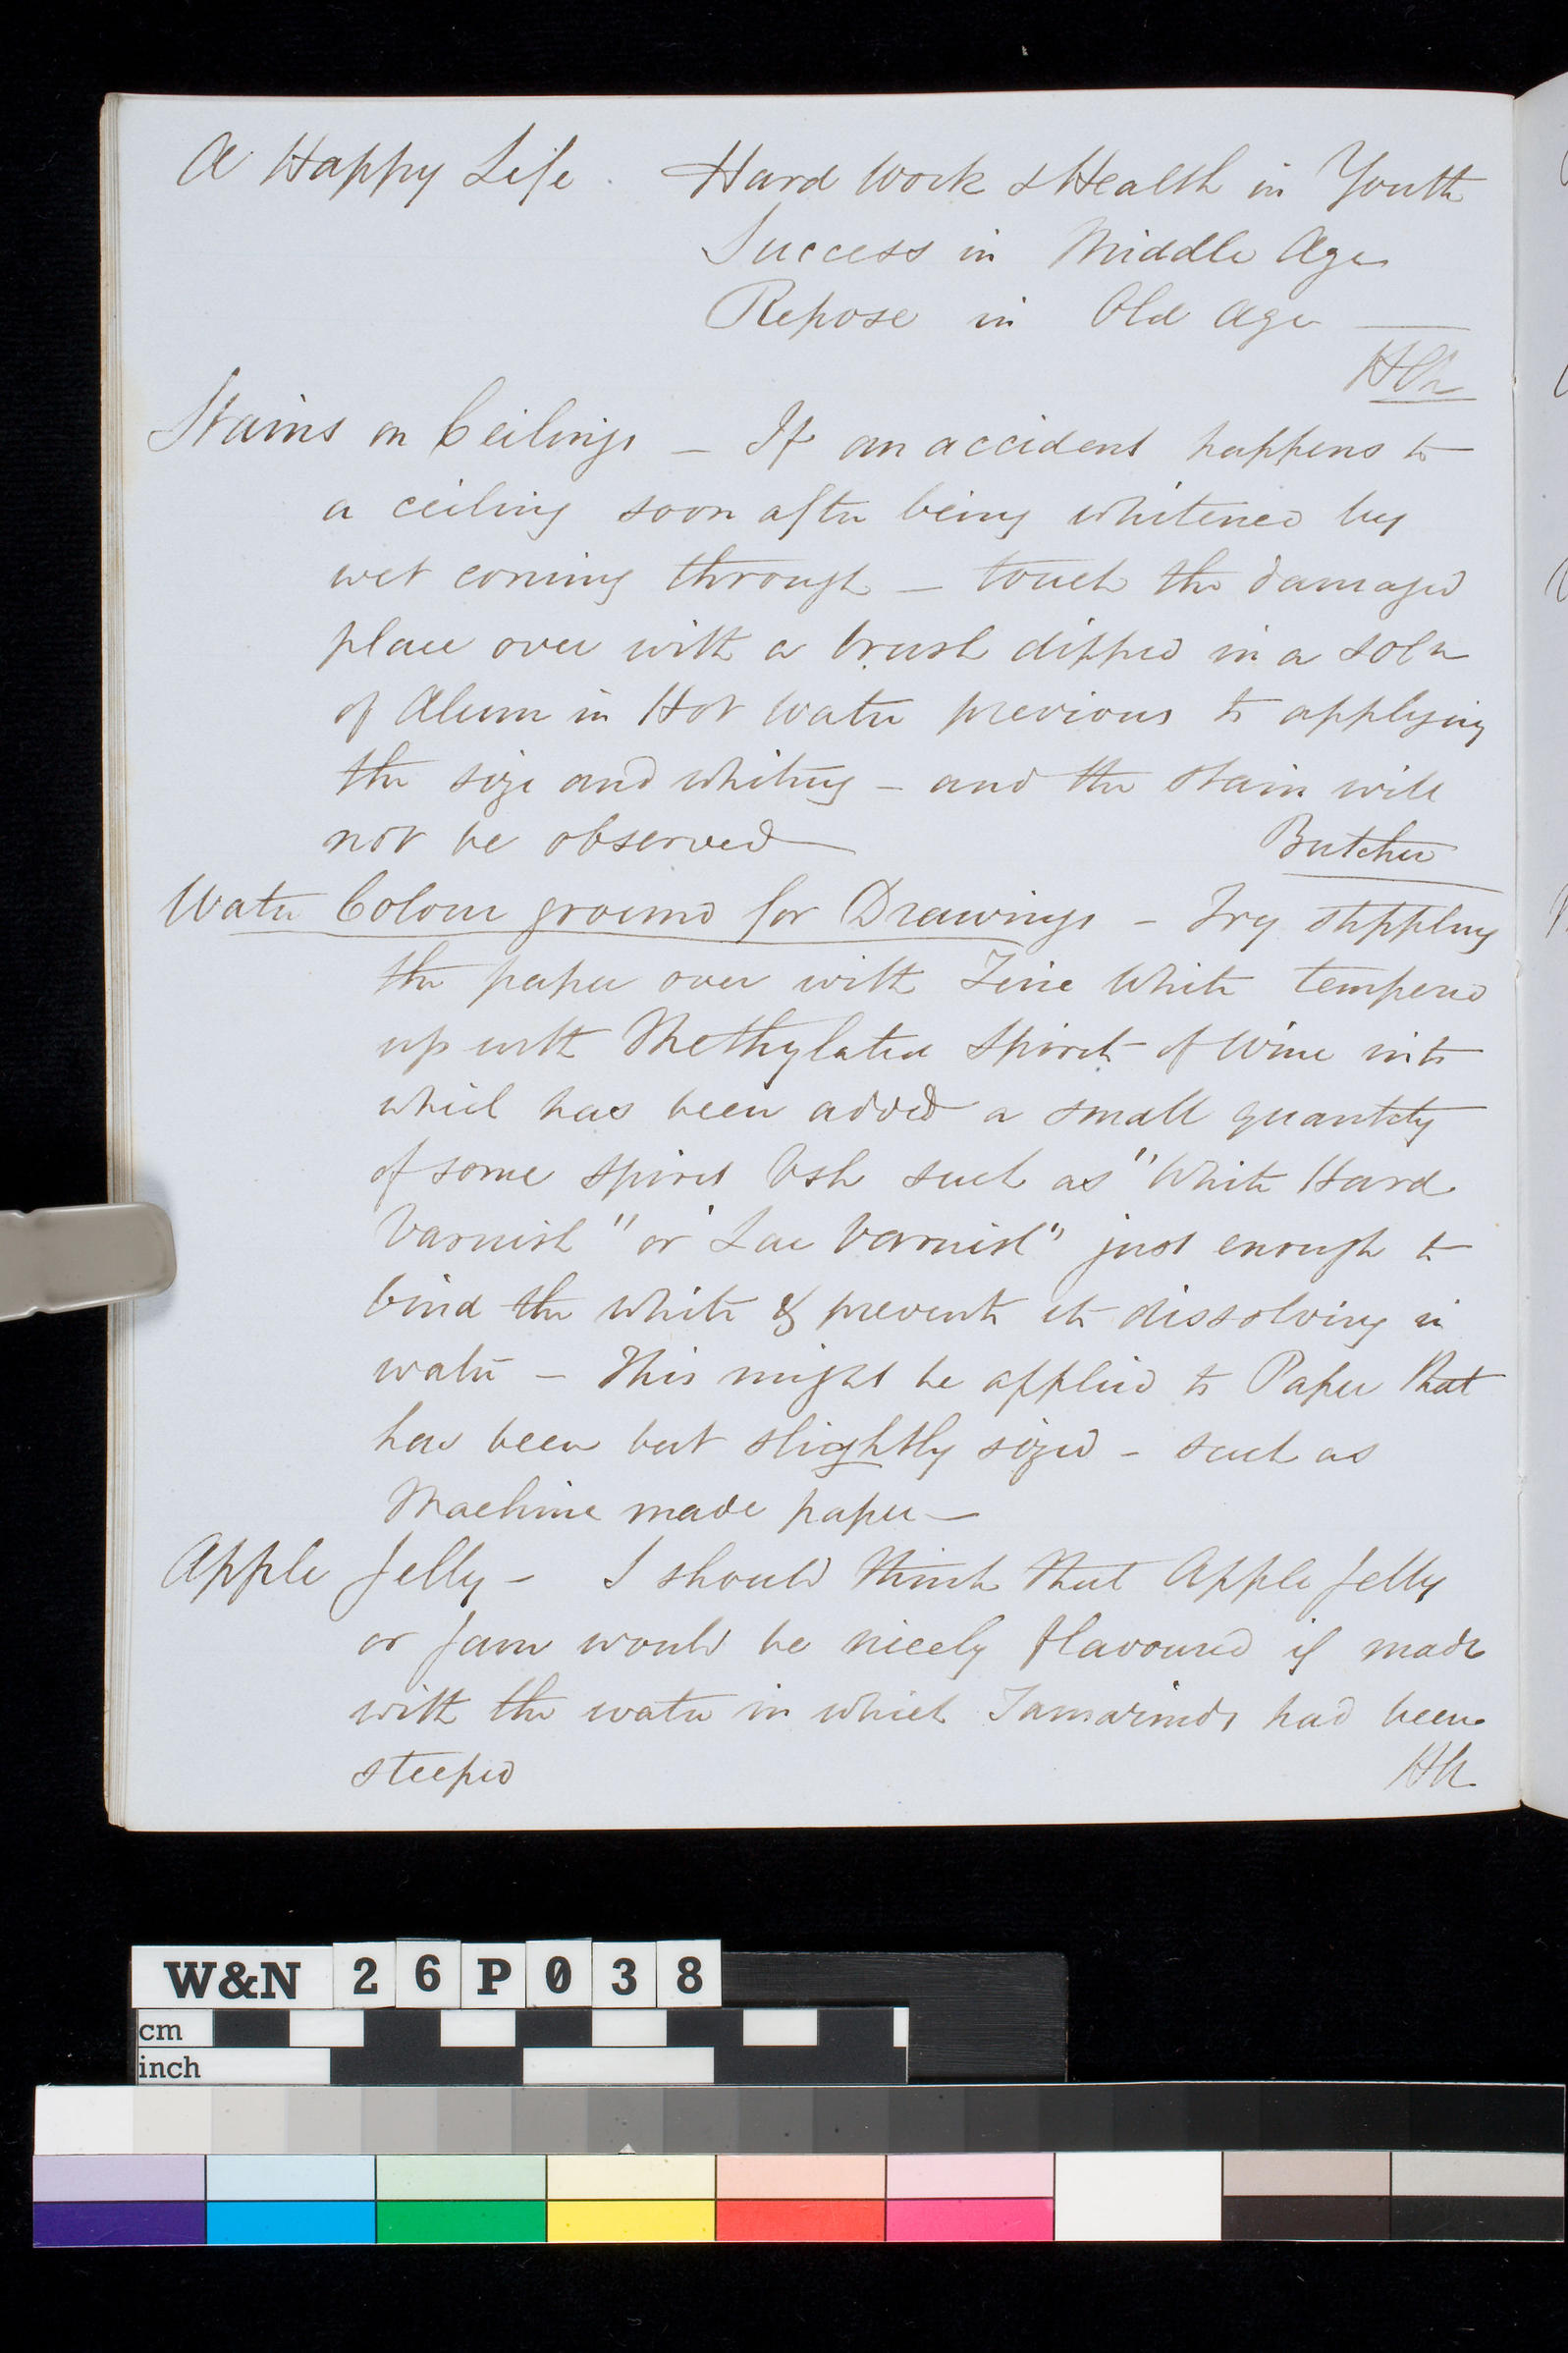 A Happy Life. Hard Work & Health in Youth
Success in Middle Age
Repose in Old Age —
Stains on Ceilings — If an accident happens to
a ceiling soon after being whitened by
wet coming through — touch the damaged
place over with a brush dipped in a soln
of Alum in Hot Water previous to applying
the size and whiting — and the stain will
not be observed —
Butcher
Water Colour ground for Drawings — Try stippling
the paper over with Zinc White tempered
up with Methylated Spirit of Wine into
which has been added a small quantity
of some spirit Vsh such as "White Hard
Varnish" or "Lac Varnish" just enough to
bind the white & prevent its dissolving in
water — This might be applied to Paper that
has been but slightly sized — such as
Machine made paper —
Apple Jelly — I should think that Apple Jelly
or Jam would be nicely flavoured if made
with the water in which Tamarinds had been
steeped
W&N 26P038
cm
inch